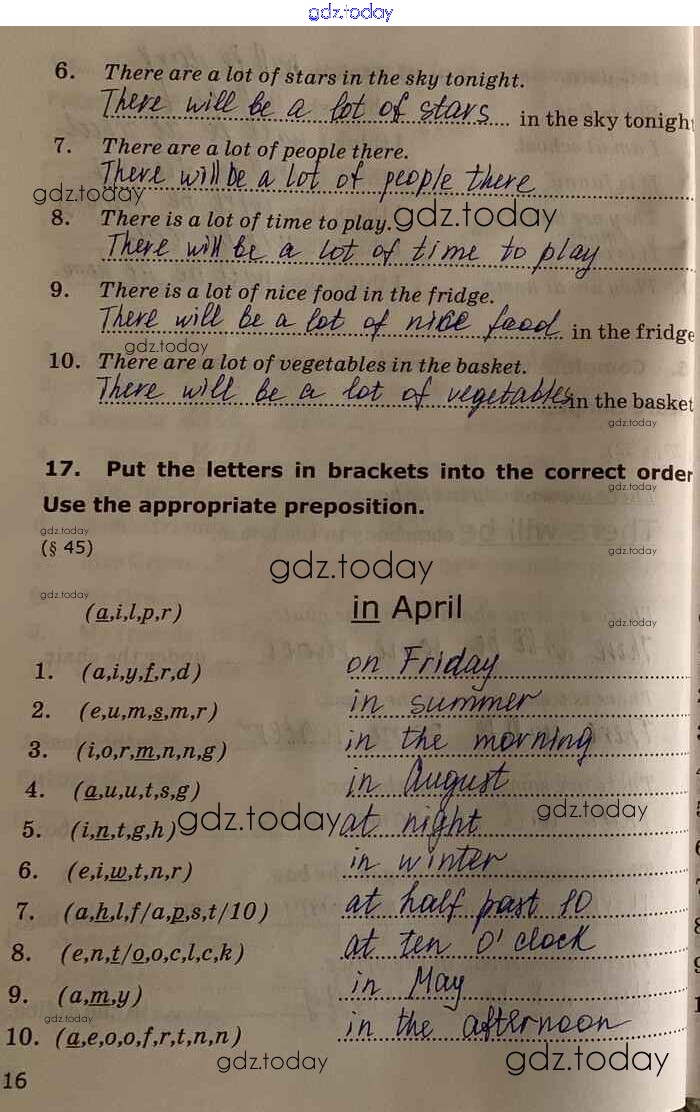 gdz.today
6. There are a lot of stars in the sky tonight.
There will be a lot of stars in the sky tonight
7. There are a lot of people there.
There will be a lot of people there
gdz.today
8. There is a lot of time to play. gdz.today
There will be a lot of time to play
9. There is a lot of nice food in the fridge.
There will be a lot of nice food in the fridge
gdz.today
10. There are a lot of vegetables in the basket.
There will be a lot of vegetables in the basket
gdz.today
17. Put the letters in brackets into the correct order
gdz.today
Use the appropriate preposition.
gdz.today
(§ 45)
gdz.today
gdz.today
gdz.today
(a,i,l,p,r) in April
gdz.today
1. (a,i,y,f,r,d) on Friday
2. (e,u,m,s,m,r) in summer
3. (i,o,r,m,n,n,g) in the morning
4. (a,u,u,t,s,g) in August
gdz.today
5. (i,n,t,g,h) gdz.today at night
6. (e,i,w,t,n,r) in winter
7. (a,h,l,f/a,p,s,t/10) at half past 10
8. (e,n,t/o,o,c,l,c,k) at ten O'clock
9. (a,m,y) in May
gdz.today
10. (a,e,o,o,f,r,t,n,n) in the afternoon
gdz.today gdz.today
16